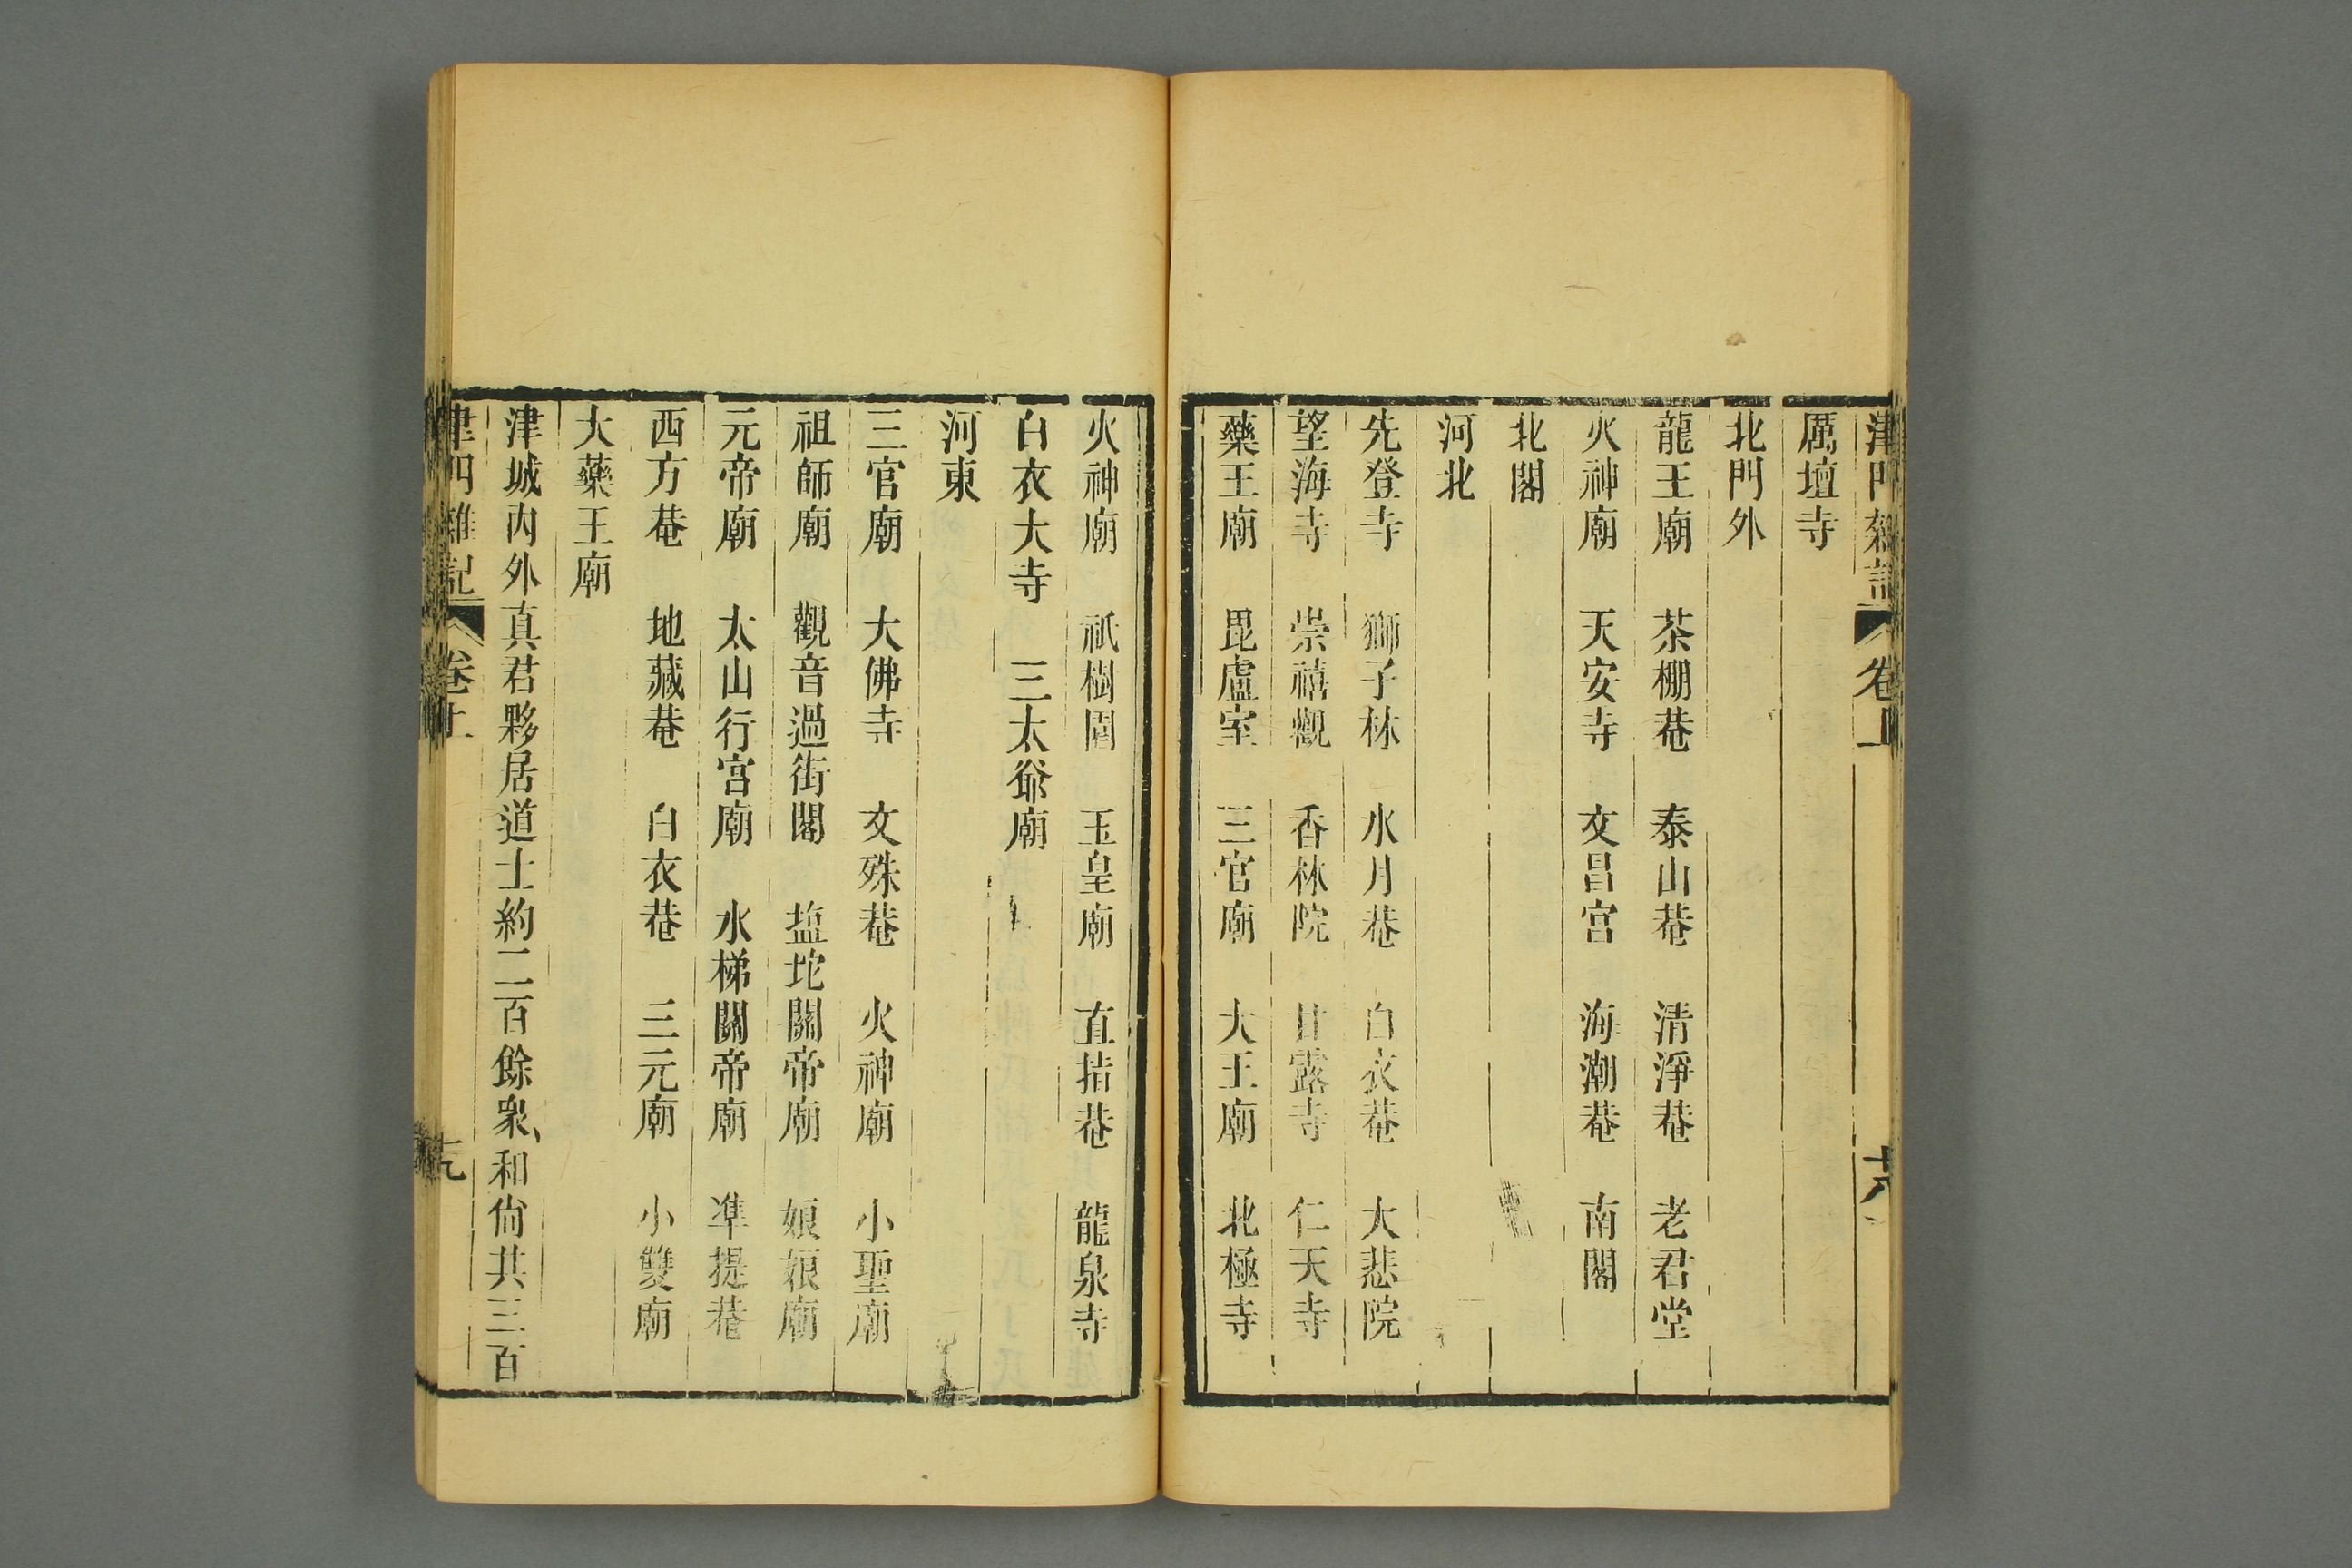 津門雜記 卷上 十八
厲壇寺
北門外
龍王廟 茶棚菴 泰山菴 清淨菴 老君堂
火神廟 天安寺 文昌宮 海潮菴 南閣
北閣
河北
先登寺 獅子林 水月菴 白衣菴 大悲院
望海寺 崇禧觀 香林院 甘露寺 仁天寺
藥王廟 毘盧室 三官廟 大王廟 北極寺
火神廟 祇樹園 玉皇廟 直指菴 龍泉寺
白衣大寺 三太爺廟
河東
三官廟 大佛寺 文殊菴 火神廟 小聖廟
祖師廟 觀音過街閣 塩坨關帝廟 娘娘廟
元帝廟 太山行宮廟 水梯關帝廟 準提菴
西方菴 地藏菴 白衣菴 三元廟 小雙廟
大藥王廟
津城內外真君夥居道士約二百餘衆、和尙共三百
津門雜記 卷上 十九